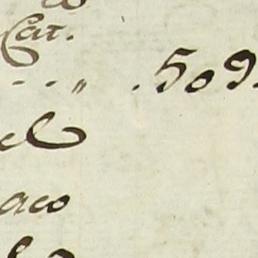 Cat.
. . „ . 509.
el
aco